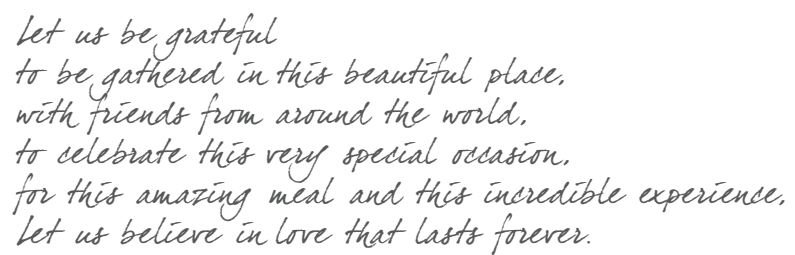 Let us be grateful
to be gathered in this beautiful place,
with friends from around the world,
to celebrate this very special occasion,
for this amazing meal and this incredible experience,
Let us believe in love that lasts forever.